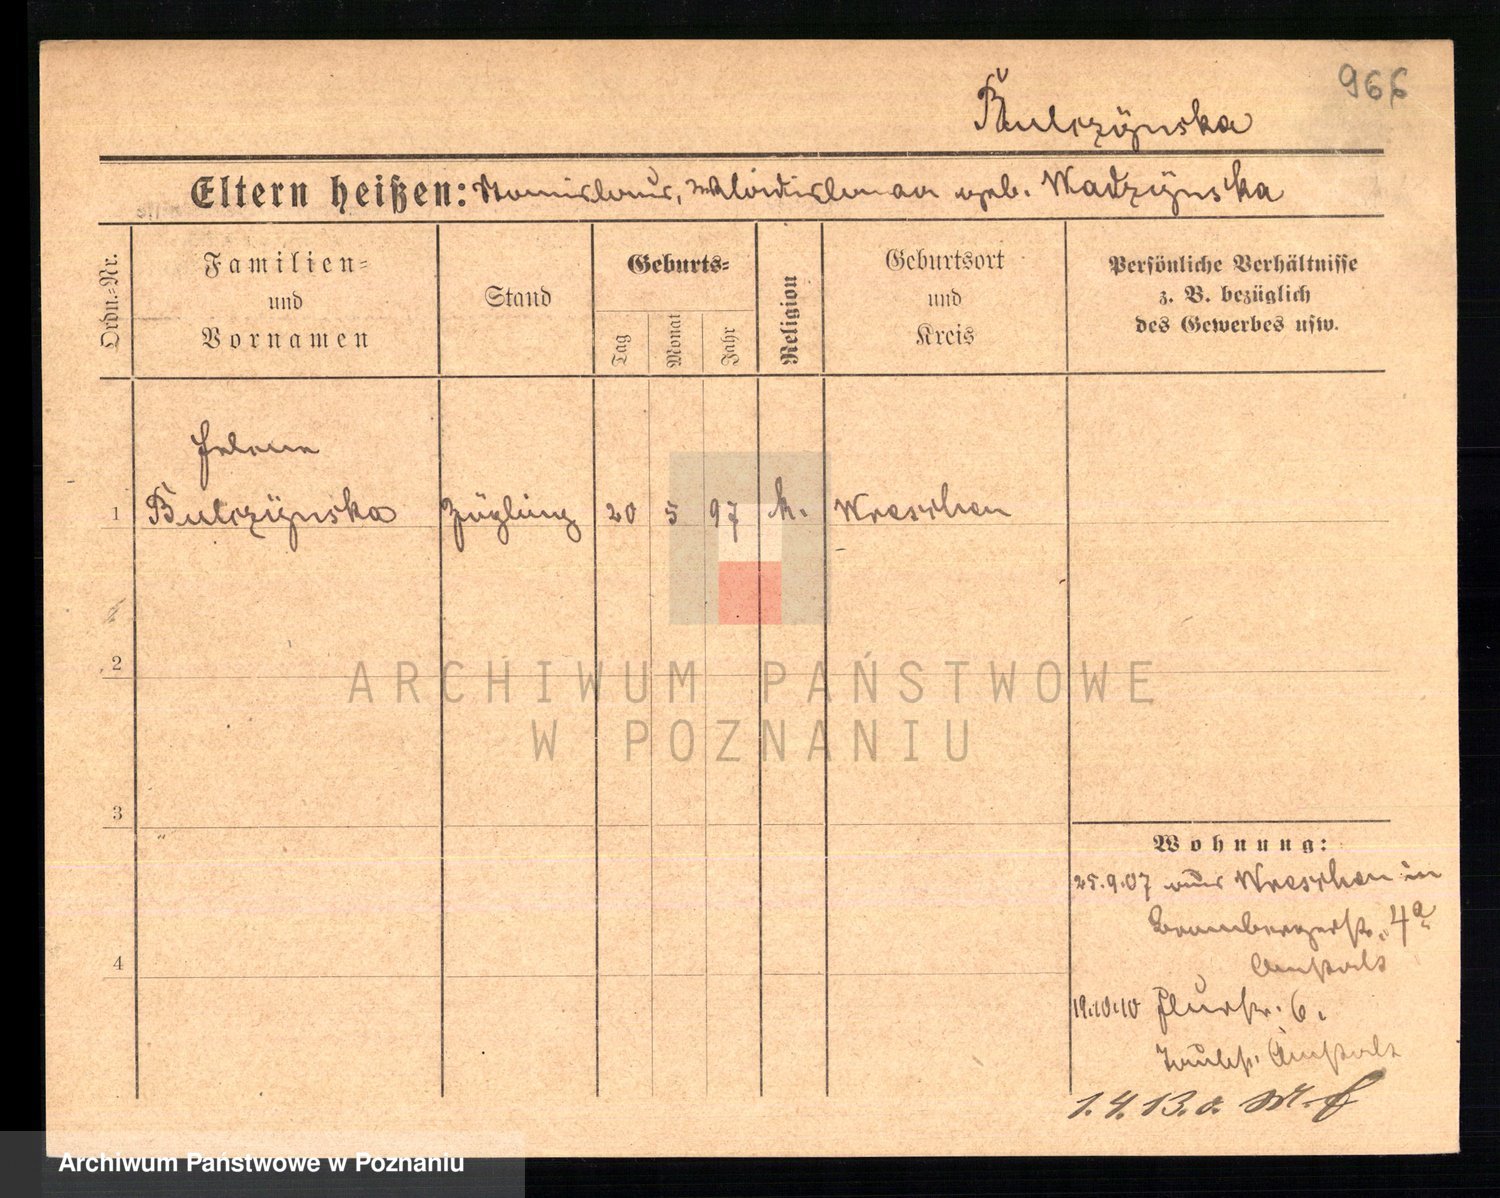 966
Bulczÿnska
Eltern heißen: Stanislaus, Wladislawa geb. Madzÿnska
Ordn.-Nr.
Familien-
und
Vornamen
Stand
Geburts-
Tag
Monat
Jahr
Religion
Geburtsort
und
Kreis
Persönliche Verhältnisse
z. B. bezüglich
des Gewerbes usw.
Helene
1 Bulczÿnska Zögling 20 5 97 k. Wreschen
2
ARCHIWUM PAŃSTWOWE
W POZNANIU
3
4
Wohnung:
25.9.07 aus Wreschen in
Brombergerstr. 4a
Anstalt
19.10.10 Flurstr. 6.
Taubst. Anstalt
1.4.13.
Archiwum Państwowe w Poznaniu